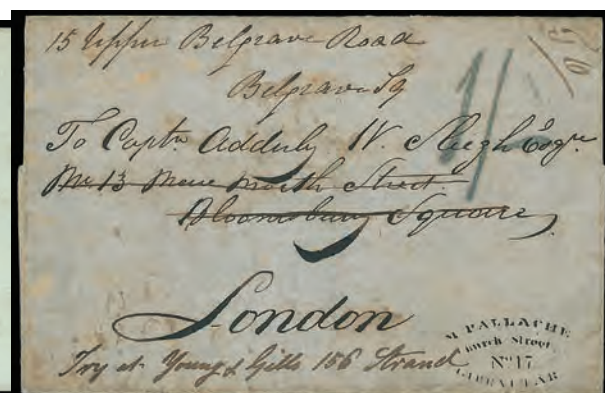 15 Upper Belgrave Road
Belgrave Sq
To Captn Adderly W. Sleigh Esqre
No 13 New North Street.
Bloomsbury Square
London
Try at Young & Gills 156 Strand
1/-
M PALLACHE
Church Street
No 17
GIBRALTAR